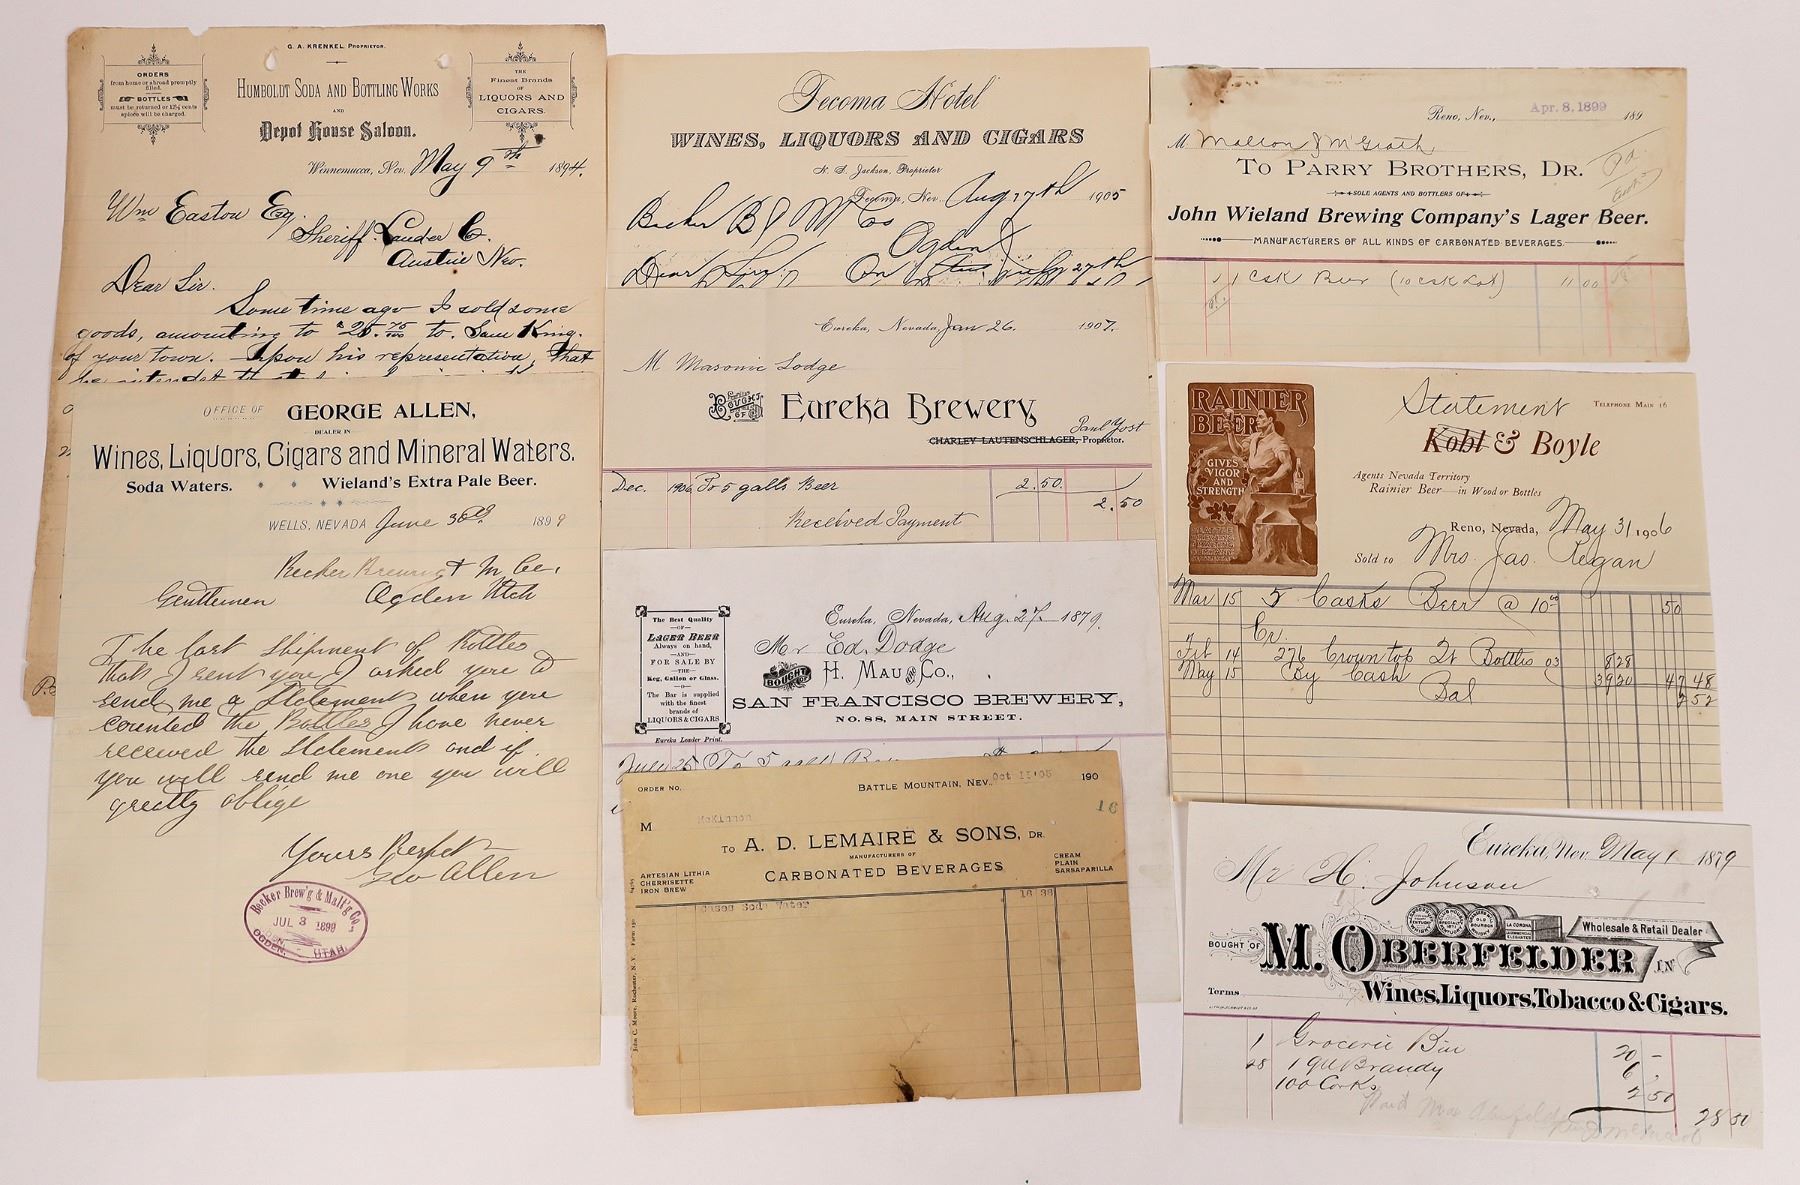 G. A. KRENKEL, PROPRIETOR.
ORDERS
from home or abroad promptly
filled.
BOTTLES
must be returned or 12½ cents
apiece will be charged.
HUMBOLDT SODA AND BOTTLING WORKS
AND
Depot House Saloon.
THE
Finest Brands
OF
LIQUORS AND
CIGARS.
Winnemucca, Nev. May 9th 1894.
Wm Easton Esq.
Sheriff. Lander Co.
Austin Nev.
Dear Sir.
Some time ago I sold some
goods, amounting to $25.75/100 to Sam King.
of your town. Upon his representation that
he intended to
OFFICE OF GEORGE ALLEN,
DEALER IN
Wines, Liquors, Cigars and Mineral Waters.
Soda Waters. Wieland's Extra Pale Beer.
WELLS, NEVADA June 30th 1899
Becker Brewing & M Co,
Gentlemen Ogden Utah
The last shipment of Bottles
that I sent you I asked you to
send me a Statement when you
counted the Bottles I have never
received the Statement and if
you will send me one you will
greatly oblige
Yours Respct
Geo Allen
Becker Brew'g & Malt'g Co.
JUL 3 1899
OGDEN, UTAH.
Tecoma Hotel
WINES, LIQUORS AND CIGARS
H. S. Jackson, Proprietor
Tecoma, Nev. Aug 17th 1905
Becker B & M Co
Ogden
Dear Sir On July 27th
Eureka, Nevada, Jan 26. 1907.
M Masonic Lodge
BOUGHT OF Eureka Brewery,
Paul Jost
CHARLEY LAUTENSCHLAGER, Proprietor.
Dec. 1906 To 5 galls Beer 2.50
2.50
Received Payment
The Best Quality
OF
LAGER BEER
Always on hand,
AND
FOR SALE BY
THE
Keg, Gallon or Glass.
The Bar is supplied
with the finest
brands of
LIQUORS & CIGARS
Eureka Leader Print.
Eureka, Nevada, Aug. 27th 1879.
Mr Ed. Dodge
BOUGHT OF H. MAU AND CO.,
SAN FRANCISCO BREWERY,
NO. 88, MAIN STREET.
July 25 To 5 gall
ORDER NO. BATTLE MOUNTAIN, NEV. Oct 15'05 190
16
M McKinnon
TO A. D. LEMAIRE & SONS, DR.
MANUFACTURERS OF
CARBONATED BEVERAGES
ARTESIAN LITHIA
CHERRISETTE
IRON BREW
CREAM
PLAIN
SARSAPARILLA
Cases Soda Water
John C. Moore, Rochester, N. Y.
Reno, Nev., Apr. 8, 1899 189
M Mallon & McGrath
TO PARRY BROTHERS, DR.
SOLE AGENTS AND BOTTLERS OF
John Wieland Brewing Company's Lager Beer.
MANUFACTURERS OF ALL KINDS OF CARBONATED BEVERAGES.
1 Csk Beer (10 csk Lot) 11 00
RAINIER
BEER
GIVES
VIGOR
AND
STRENGTH
Statement
TELEPHONE MAIN 16
Kobl & Boyle
Agents Nevada Territory
Rainier Beer—in Wood or Bottles
Reno, Nevada, May 31 1906
Sold to Mrs. Jas. Regan
Mar 15 5 Casks Beer @ 10.00 50
Cr.
Feb 14 276 Crown top Qt Bottles 03 8 28
May 15 By Cash 39 20 47 48
Bal 2 52
Eureka, Nev. May 1 1879
Mr H. Johnson
BOUGHT OF M. OBERFELDER IN
Wholesale & Retail Dealer
LA CORONA
Terms
Wines, Liquors, Tobacco & Cigars.
1 Grocerie Bill 20 –
28 1 gll Brandy 6
100 Corks 2 50
28 50